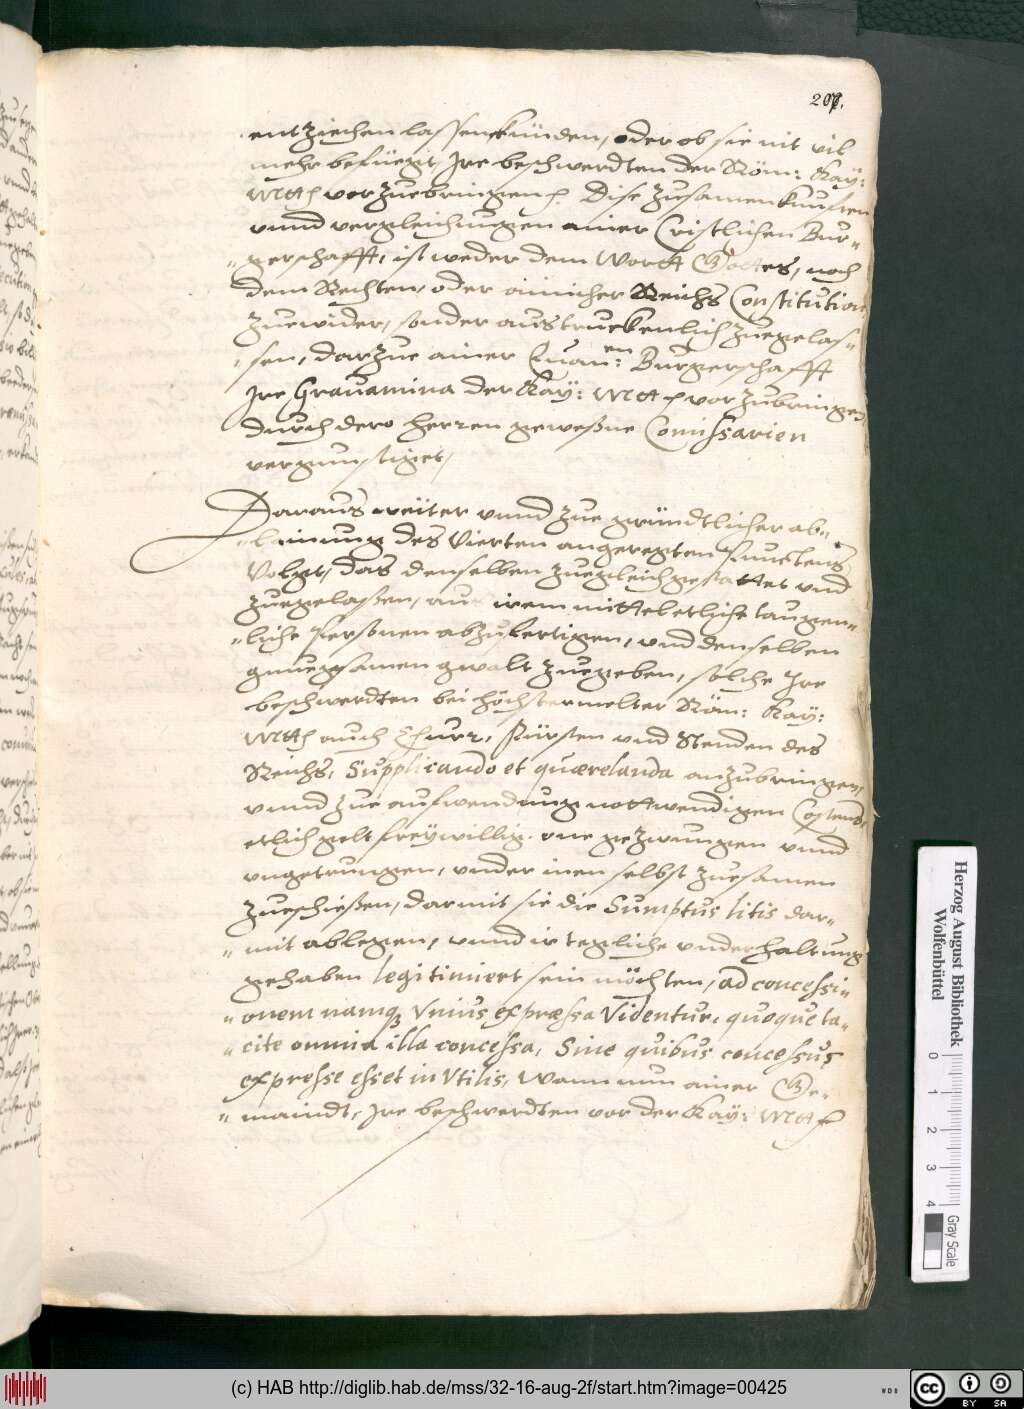 207.
entziehen lassen künden, oder ob sie nit vil
mehr befüegt, Ire beschwerdten der Röm: Kay:
Mtt: vorzuebringen. Dise zusamenkunften
vnnd vergleichungen ainer Cristlichen Bur„
„gerschafft, ist weder dem Wortt Gottes, noch
dem Rechten, oder ainicher Reichs Constitution
zuewider, sonder austruckenlich zuegelas„
„sen, darzue ainer Euan:en Burgerschafft
Ire Grauamina der Kay: Mtt: vorzubringen
durch dero herren geweßne Comissarien
vergunstiget,
Daraus weiter vnnd zue gründtlicher ab„
„lainung des Vierten angeregten Punctens
Volgt, das denselben zuegleich gestattet vnd
zuegelaßen, aus irem mittel etliche taugen„
„liche Personen abzufertigen, vnd denselben
gnuegsamen gwalt zuegeben, solche Ire
beschwerdten bei höchstermelter Röm: Kay:
Mtt: auch Churf. Fürsten vnd Stenden des
Reichs, Supplicando et quærelanda anzubringen,
vnnd zue aufwendung nottwendigen Costens,
etlich gelt freywillig, one gezwungen vnnd
vngetrungen, vnder inen selbst zuesamen
zueschießen, darmit sie die Sumptus litis dar„
„mit ablegen, vnnd ir tegliche vnderhaltung
gehaben legitimiert sein möchten, ad concessi„
„onem namq; Vnius expræssa Videntur, quoque ta„
„cite omnia illa concessa, Sine quibus concessus
expresse esset inVtilis, Wann nun ainer Ge„
„maindt, Ire beschwerdten vor der Kay: Mtt:
Herzog August Bibliothek
Wolfenbüttel
0 1 2 3 4
Gray Scale
(c) HAB http://diglib.hab.de/mss/32-16-aug-2f/start.htm?image=00425
WDB
cc BY SA